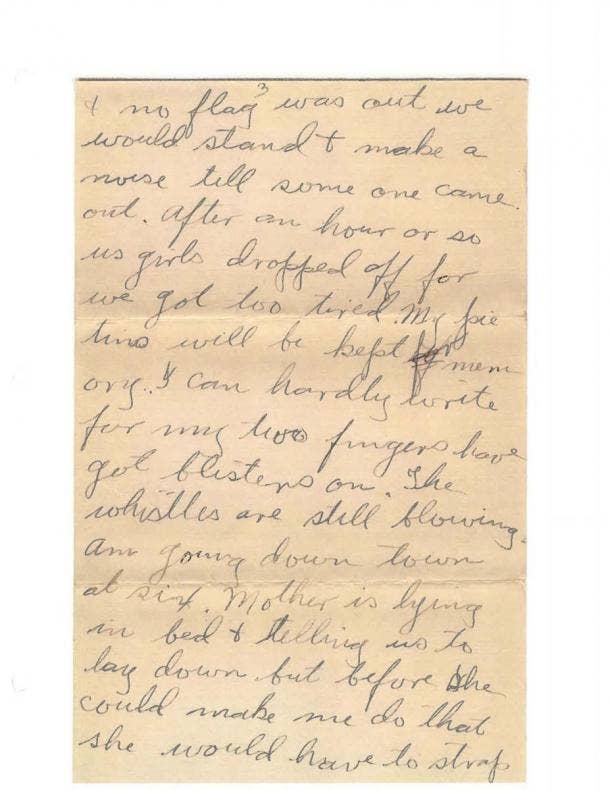 3
& no flag was out we
would stand & make a
noise till some one came
out. After an hour or so
us girls dropped off for
we got too tired. My pie
tins will be kept for mem
ory. I can hardly write
for my two fingers have
got blisters on. The
whistles are still blowing.
Am going down town
at six. Mother is lying
in bed & telling us to
lay down but before she
could make me do that
she would have to strap